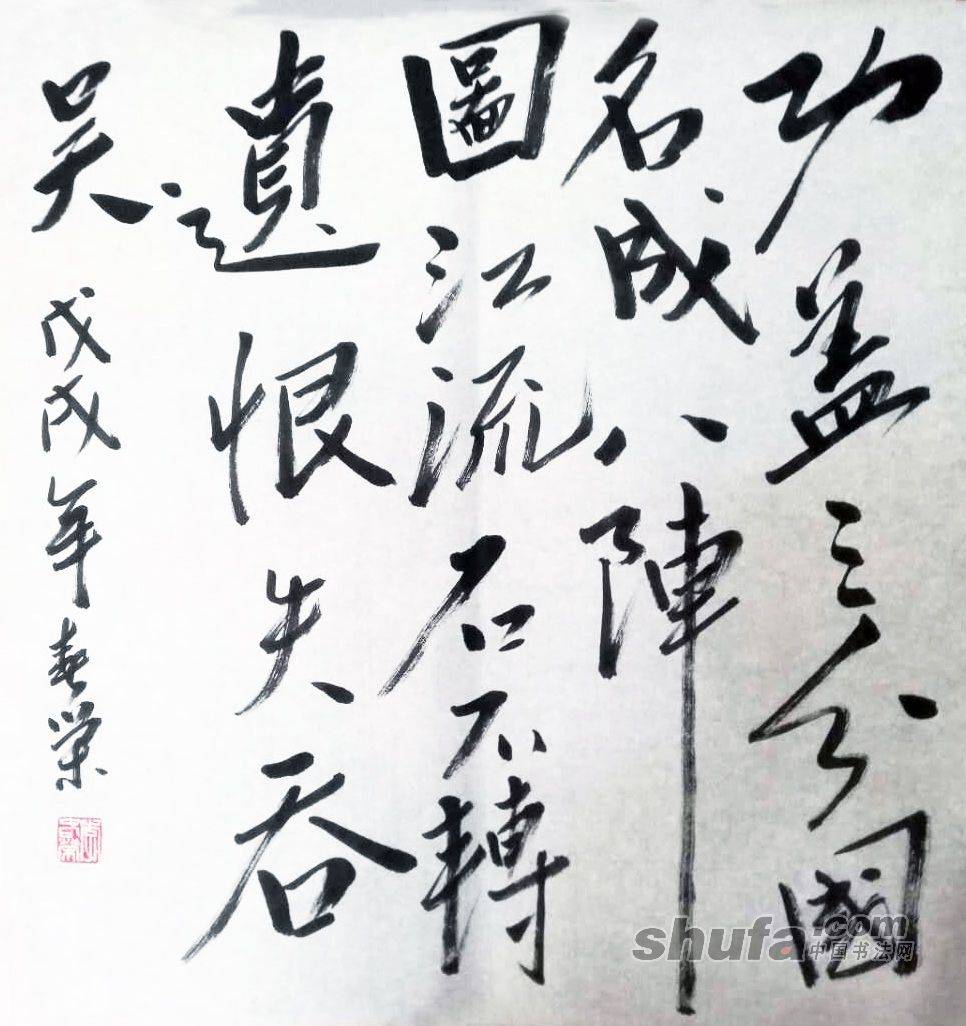 功盖三分國
名成八陣
圖江流石不轉
遺恨失吞
吴
戊戌年春榮
shufa.com
中国书法网